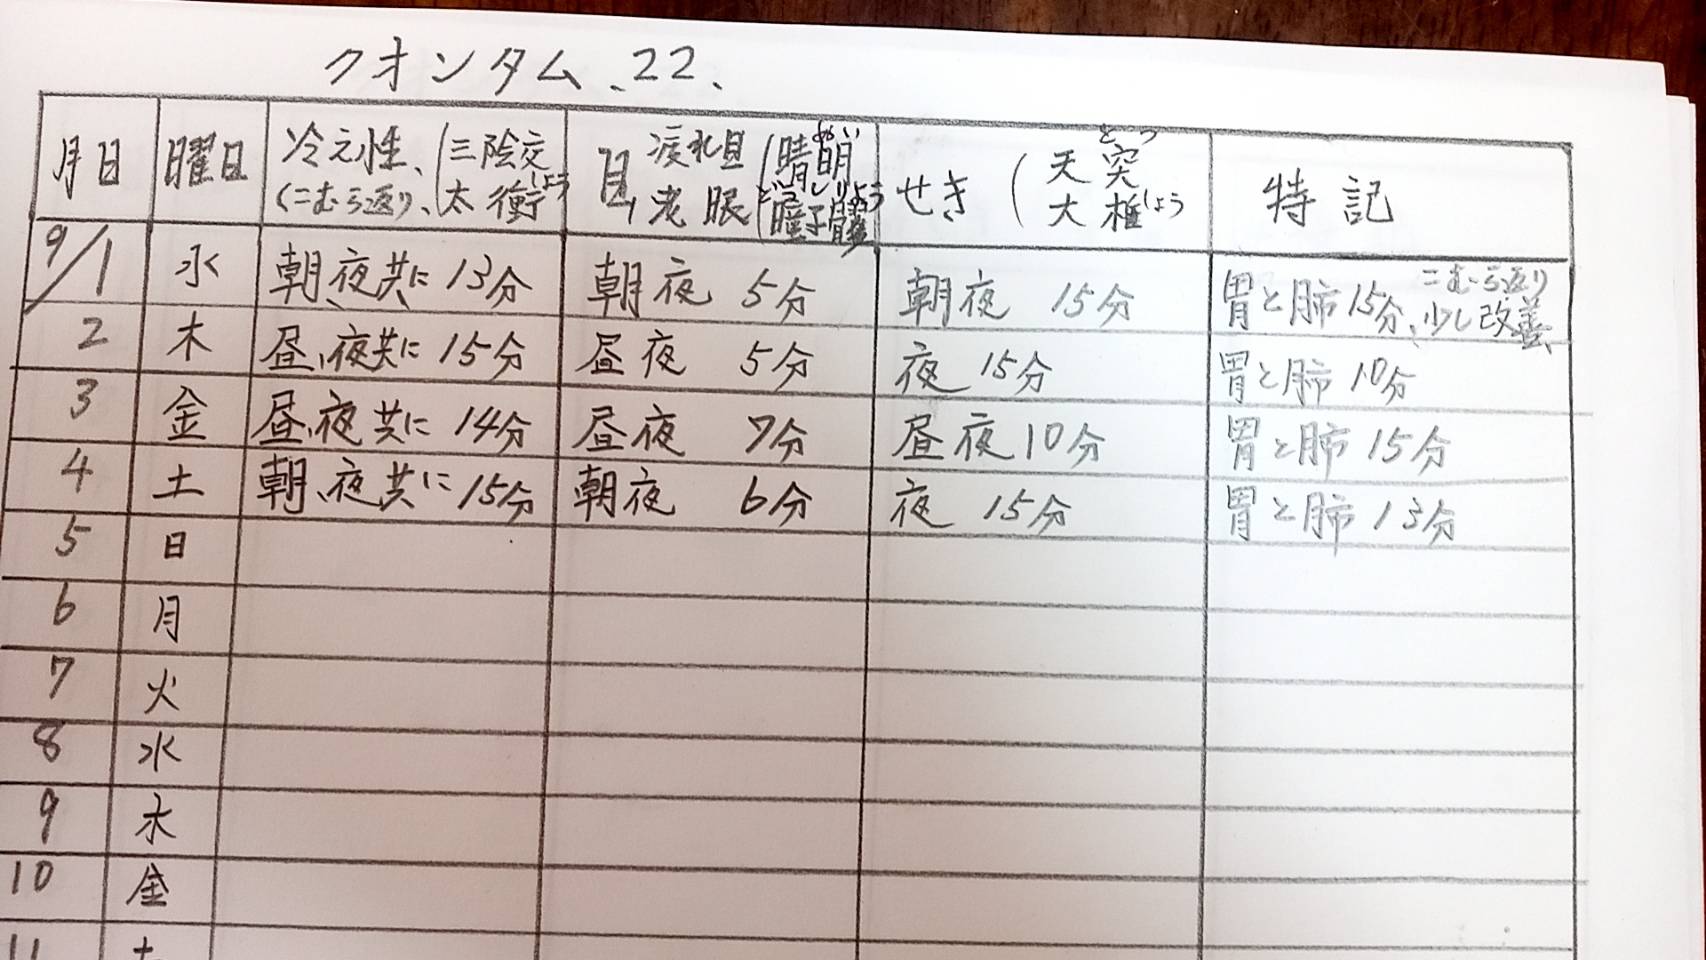 クオンタム、22、
月日 曜日 冷え性、(三陰交 目 疲れ目(晴明 せき(天突 特記
(こむら返り)、太衝 老眼 瞳子髎 大椎
めい どうしりょう とつ しょう しょう
9/1 水 朝、夜共に 13分 朝夜 5分 朝夜 15分 胃と肺15分、こむら返り少し改善、
2 木 昼、夜共に 15分 昼夜 5分 夜 15分 胃と肺 10分
3 金 昼、夜共に 14分 昼夜 7分 昼夜 10分 胃と肺 15分
4 土 朝、夜共に 15分 朝夜 6分 夜 15分 胃と肺 13分
5 日
6 月
7 火
8 水
9 木
10 金
11 土